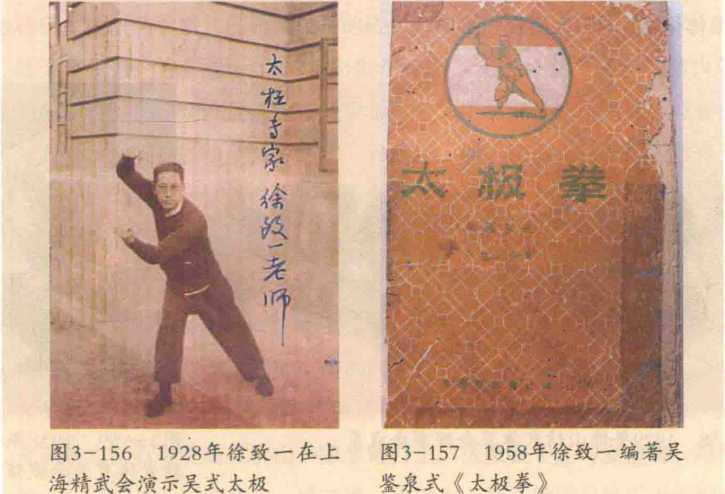 太极专家徐致一老师
太极拳
图3-156 1928年徐致一在上
海精武会演示吴式太极
图3-157 1958年徐致一编著吴
鉴泉式《太极拳》